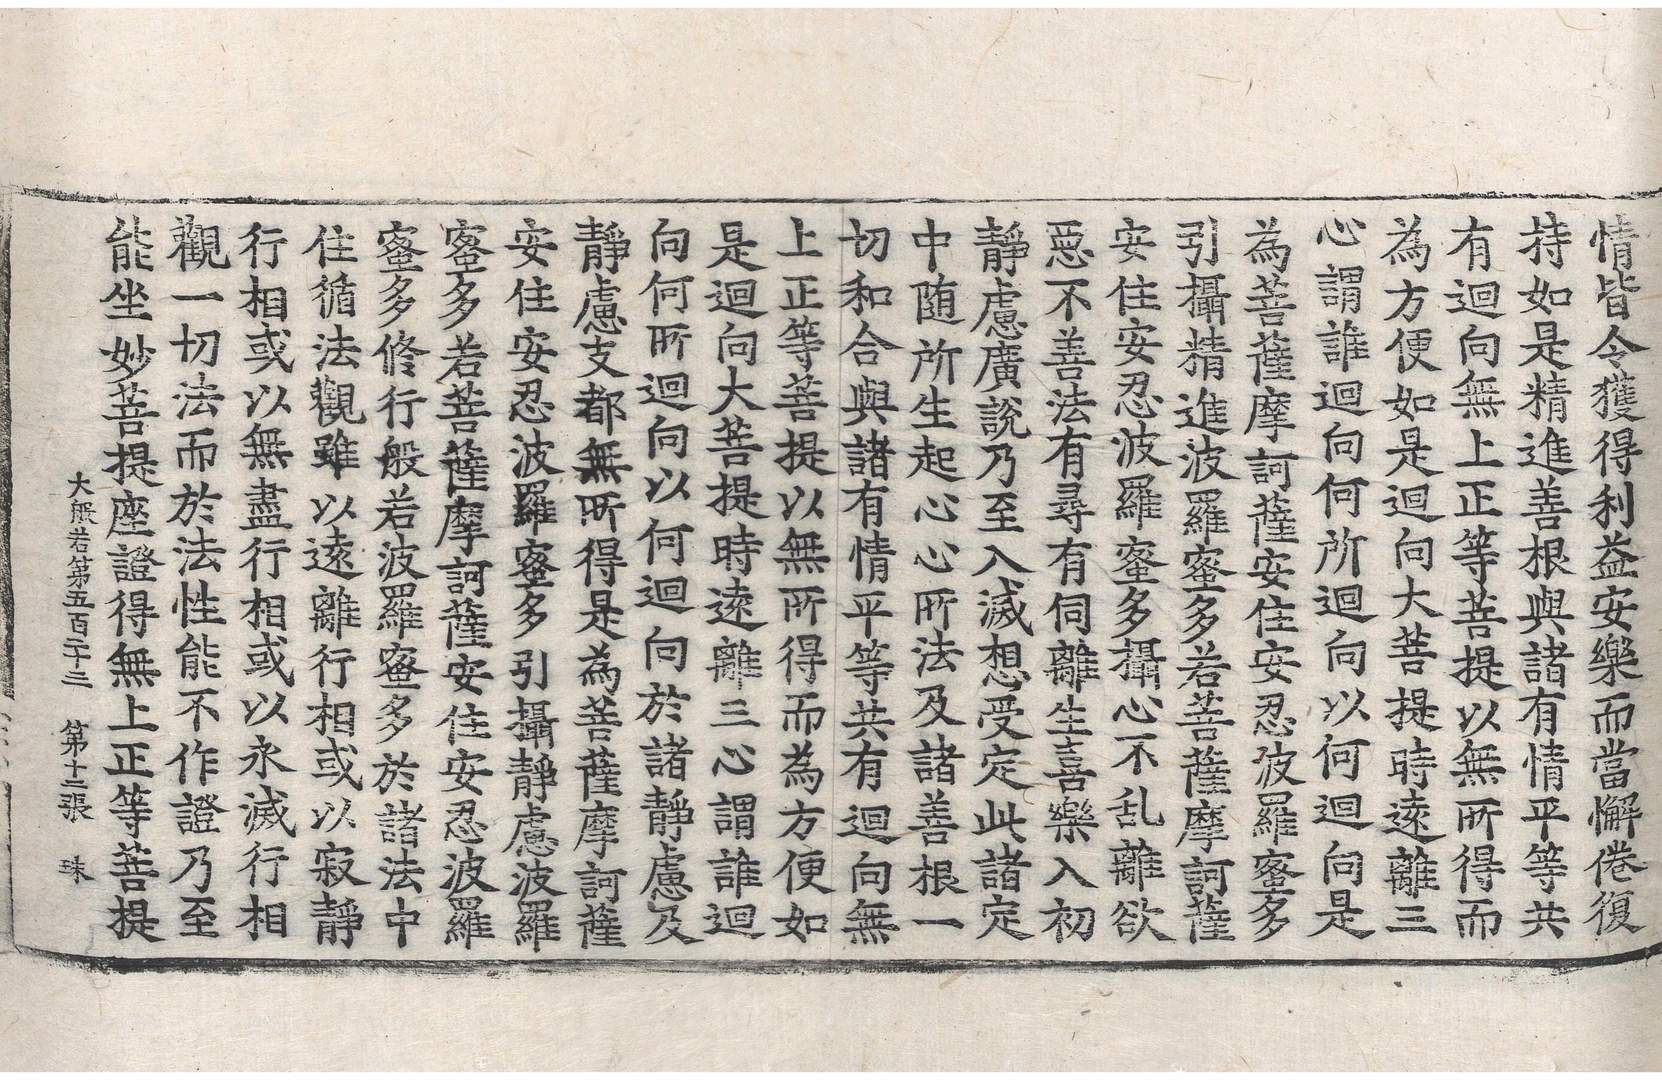 情皆令獲得利益安樂而當懈倦復
持如是精進善根與諸有情平等共
有迴向無上正等菩提以無所得而
為方便如是迴向大菩提時遠離三
心謂誰迴向何所迴向以何迴向是
為菩薩摩訶薩安住安忍波羅蜜多
引攝精進波羅蜜多若菩薩摩訶薩
安住安忍波羅蜜多攝心不乱離欲
惡不善法有尋有伺離生喜樂入初
靜慮廣說乃至入滅想受定此諸定
中随所生起心心所法及諸善根一
切和合與諸有情平等共有迴向無
上正等菩提以無所得而為方便如
是迴向大菩提時遠離三心謂誰迴
向何所迴向以何迴向於諸靜慮及
靜慮支都無所得是為菩薩摩訶薩
安住安忍波羅蜜多引攝靜慮波羅
蜜多若菩薩摩訶薩安住安忍波羅
蜜多修行般若波羅蜜多於諸法中
住循法觀雖以遠離行相或以寂靜
行相或以無盡行相或以永滅行相
觀一切法而於法性能不作證乃至
能坐妙菩提座證得無上正等菩提
大般若第五百二十三 第十二張 珠